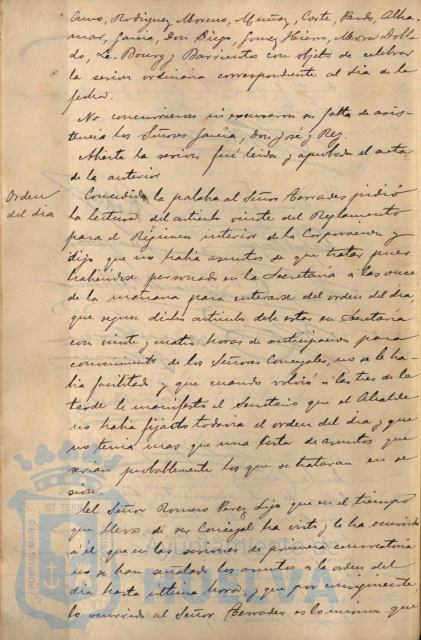 Cano, Rodriguez Moreno, Muñoz, Corte, Pardo, Alba-
mar, Garcia, Don Diego, Gomez Hierro, Mora Dobla-
do, Le-Bourg y Barrientos con objeto de celebrar
la sesion ordinaria correspondiente al dia de la
fecha.
No concurrieron ni escusaron su falta de asis-
tencia los Señores Garcia, Don José y Rey.
Abierta la sesion fué leida y aprobada el acta
de la anterior
Orden
del dia
Concedida la palabra al Señor Terrades pidió
la lectura del articulo veinte del Reglamento
para el Régimen interior de la Corporacion y
dijo que no habia asuntos de que tratar pues
habiendose personado en la Secretaría a las once
de la mañana para enterarse del orden del dia,
que segun dicho articulo debe estar en Secretaría
con veinte y cuatro horas de anticipacion para
conocimiento de los Señores Concejales, no se le ha-
bia facilitado y que cuando volvió a las tres de la
tarde le manifestó el Secretario que el Alcalde
no habia fijado todavia el orden del dia, y que
no tenia mas que una lista de asuntos que
serian probablemente los que se trataran en se-
sion.
El Señor Romero Perez dijo que en el tiempo
que lleva de ser Concejal ha visto y le ha ocurrido
a él que en las sesiones de primera convocatoria
no se han señalado los asuntos a la orden del
dia hasta última hora, y que por consiguiente
lo ocurrido al Señor Terrades es lo mismo que
Ayuntamiento de
HUELVA
PORTUS MARIS
ET TERRAE